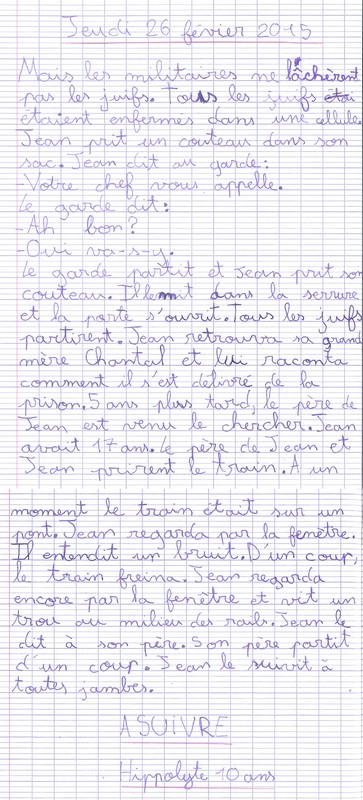 Jeudi 26 février 2015
Mais les militaires ne lâchèrent
pas les juifs. Tous les juifs étai
étaient enfermés dans une cellule.
Jean prit un couteau dans son
sac. Jean dit au garde:
-Votre chef vous appelle.
Le garde dit:
-Ah bon?
-Oui va-s-y.
Le garde partit et Jean prit son
couteau. Il le mit dans la serrure
et la porte s'ouvrit. Tous les juifs
partirent. Jean retrouva sa grand
mère Chantal et lui raconta
comment il s'est délivré de la
prison. 5 ans plus tard, le père de
Jean est venu le chercher. Jean
avait 17 ans. Le père de Jean et
Jean prirent le train. A un
moment le train était sur un
pont. Jean regarda par la fenêtre.
Il entendit un bruit. D'un coup,
le train freina. Jean regarda
encore par la fenêtre et vit un
trou au milieu des rails. Jean le
dit à son père. Son père partit
d'un coup. Jean le suivit à
toutes jambes.
A SUIVRE
Hippolyte 10 ans